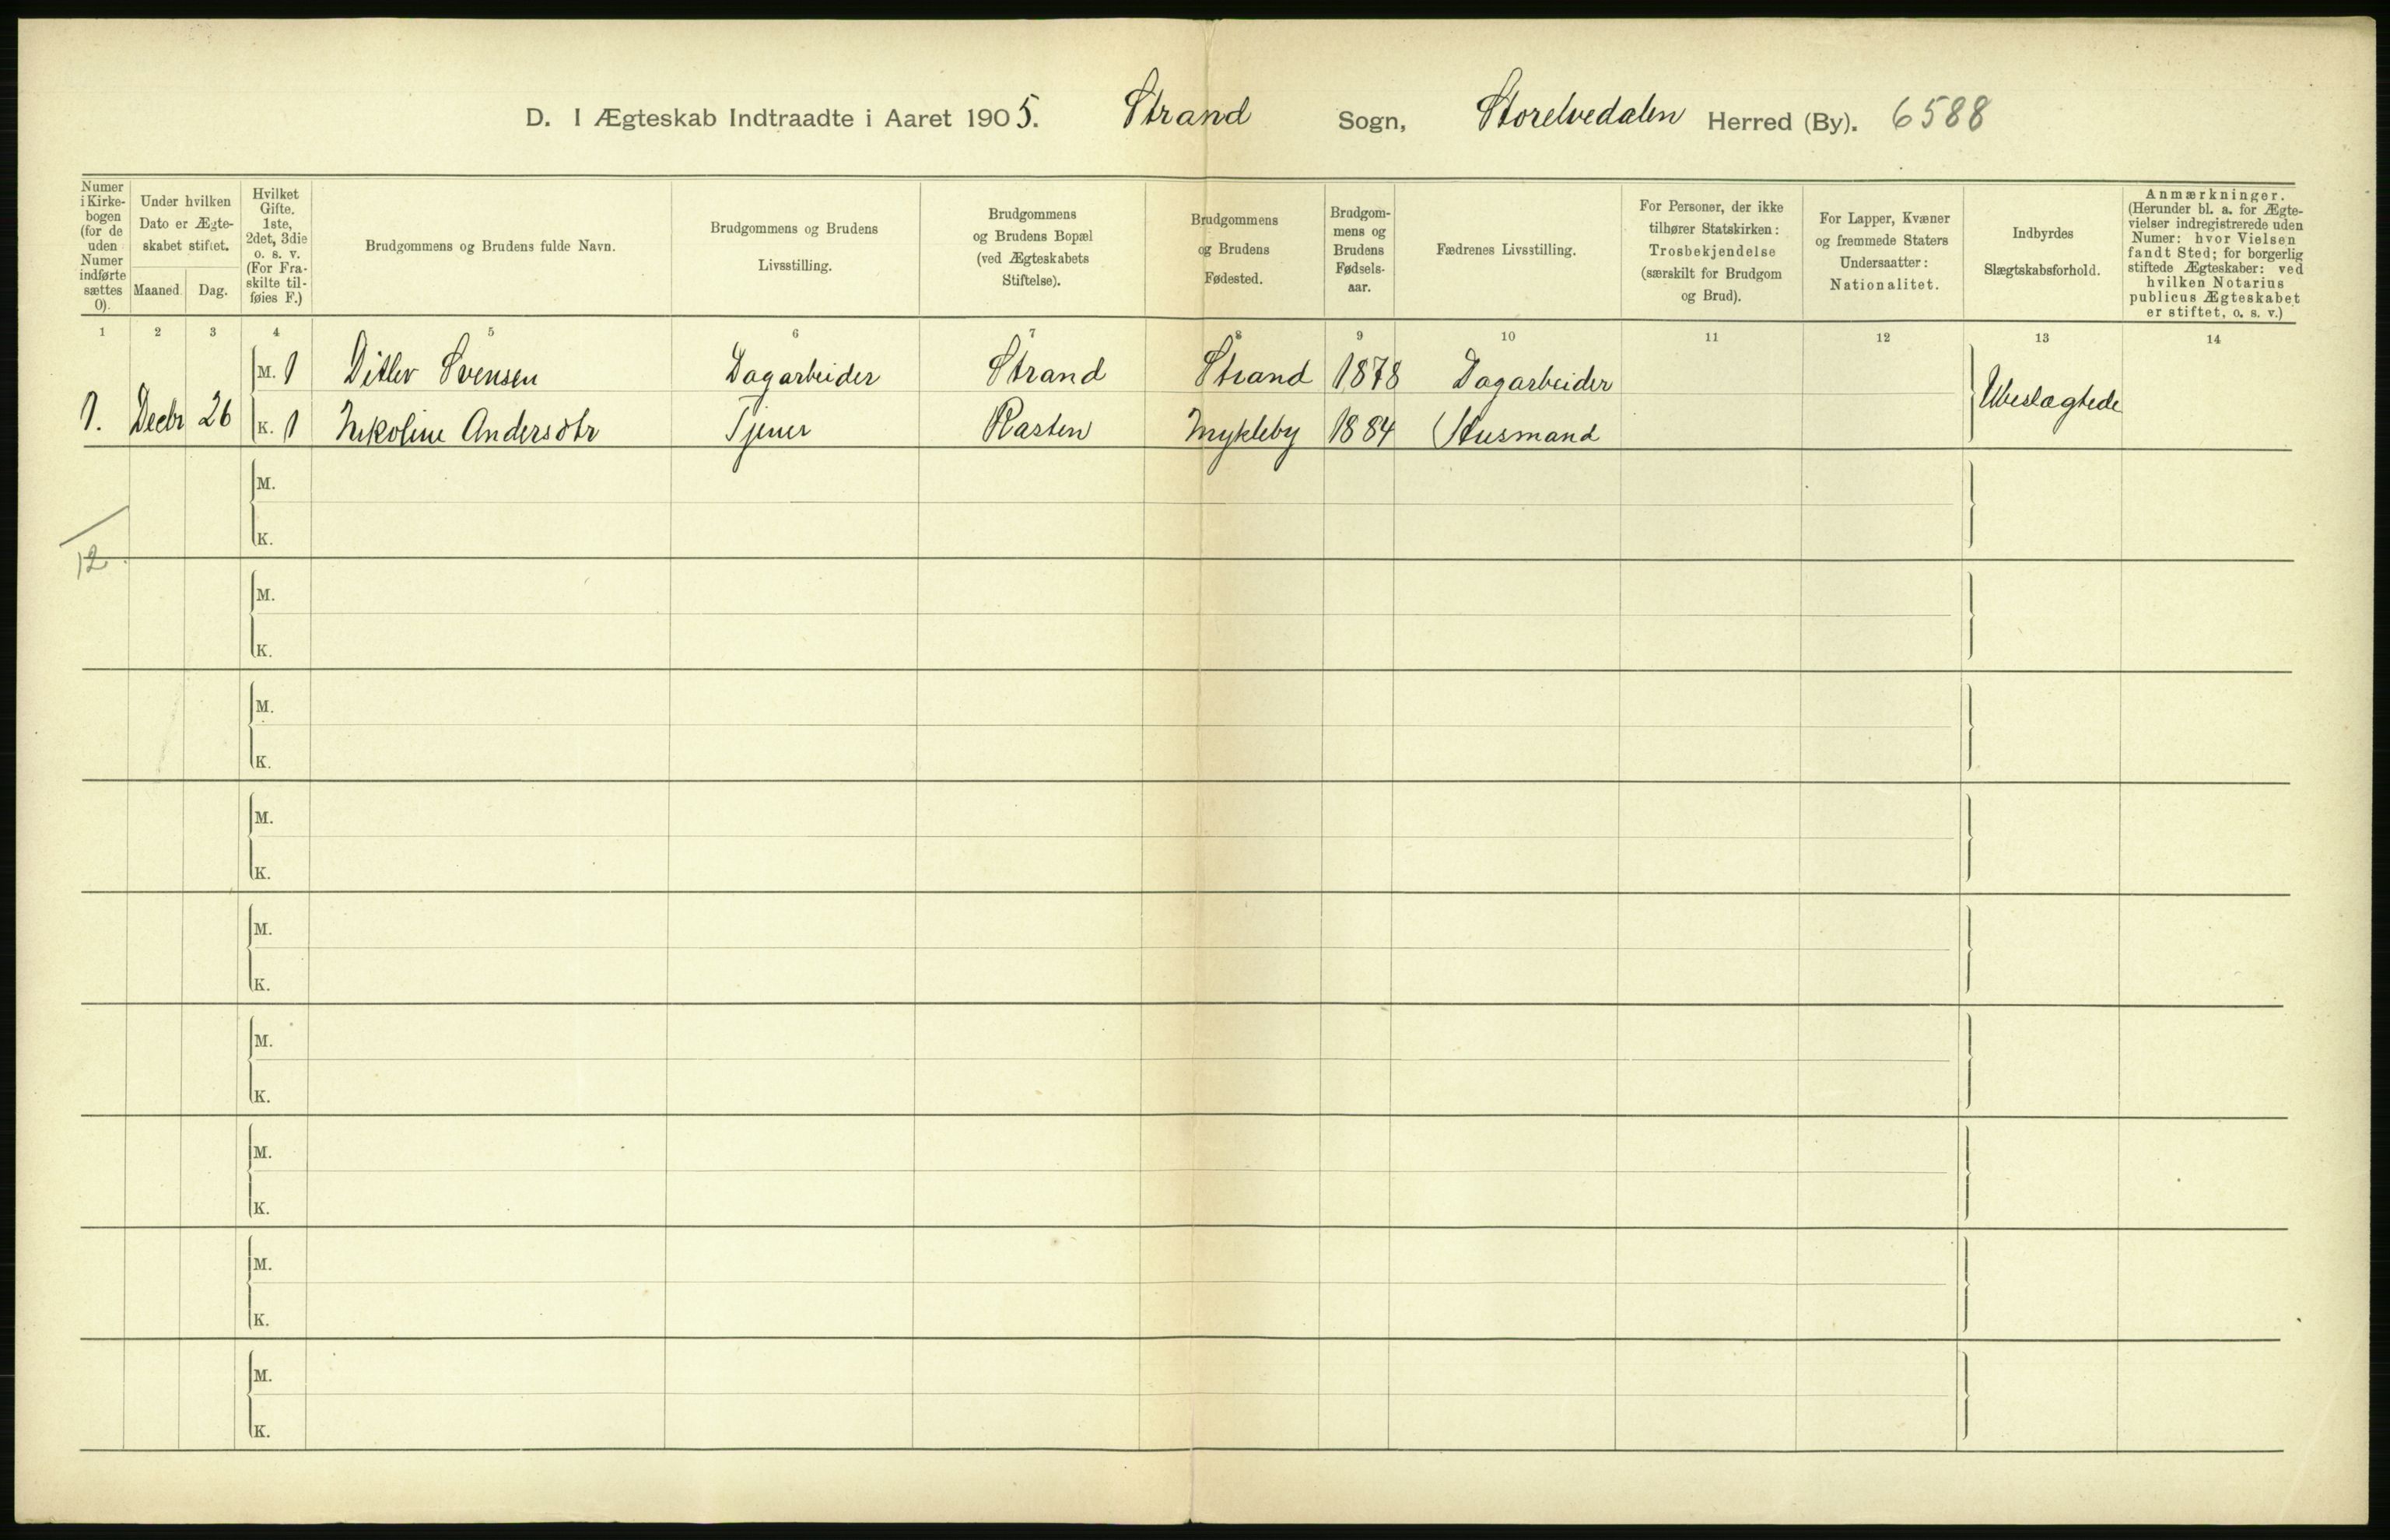 D. I Ægteskab Indtraadte i Aaret 1905. Strand Sogn, Storelvedalen Herred (By). 6588
Numer i Kirkebogen (for de uden Numer indførte sættes 0).
Under hvilken Dato er Ægteskabet stiftet.
Maaned Dag.
Hvilket Gifte. 1ste, 2det, 3die o. s. v. (For Fraskilte tilføies F.)
Brudgommens og Brudens fulde Navn.
Brudgommens og Brudens Livsstilling.
Brudgommens og Brudens Bopæl (ved Ægteskabets Stiftelse).
Brudgommens og Brudens Fødested.
Brudgommens og Brudens Fødselsaar.
Fædrenes Livsstilling.
For Personer, der ikke tilhører Statskirken: Trosbekjendelse (særskilt for Brudgom og Brud).
For Lapper, Kvæner og fremmede Staters Undersaatter: Nationalitet.
Indbyrdes Slægtskabsforhold.
Anmærkninger. (Herunder bl. a. for Ægtevielser indregistrerede uden Numer: hvor Vielsen fandt Sted; for borgerlig stiftede Ægteskaber: ved hvilken Notarius publicus Ægteskabet er stiftet, o. s. v.)
1 2 3 4 5 6 7 8 9 10 11 12 13 14
M. 1 Ditlev Svensen Dagarbeider Strand Strand 1878 Dagarbeider
1. Decbr 26 K. 1 Nikoline Andersdtr Tjener Rasten Mykleby 1884 Husmand Ubeslægtede
M.
K.
12.
M.
K.
M.
K.
M.
K.
M.
K.
M.
K.
M.
K.
M.
K.
M.
K.